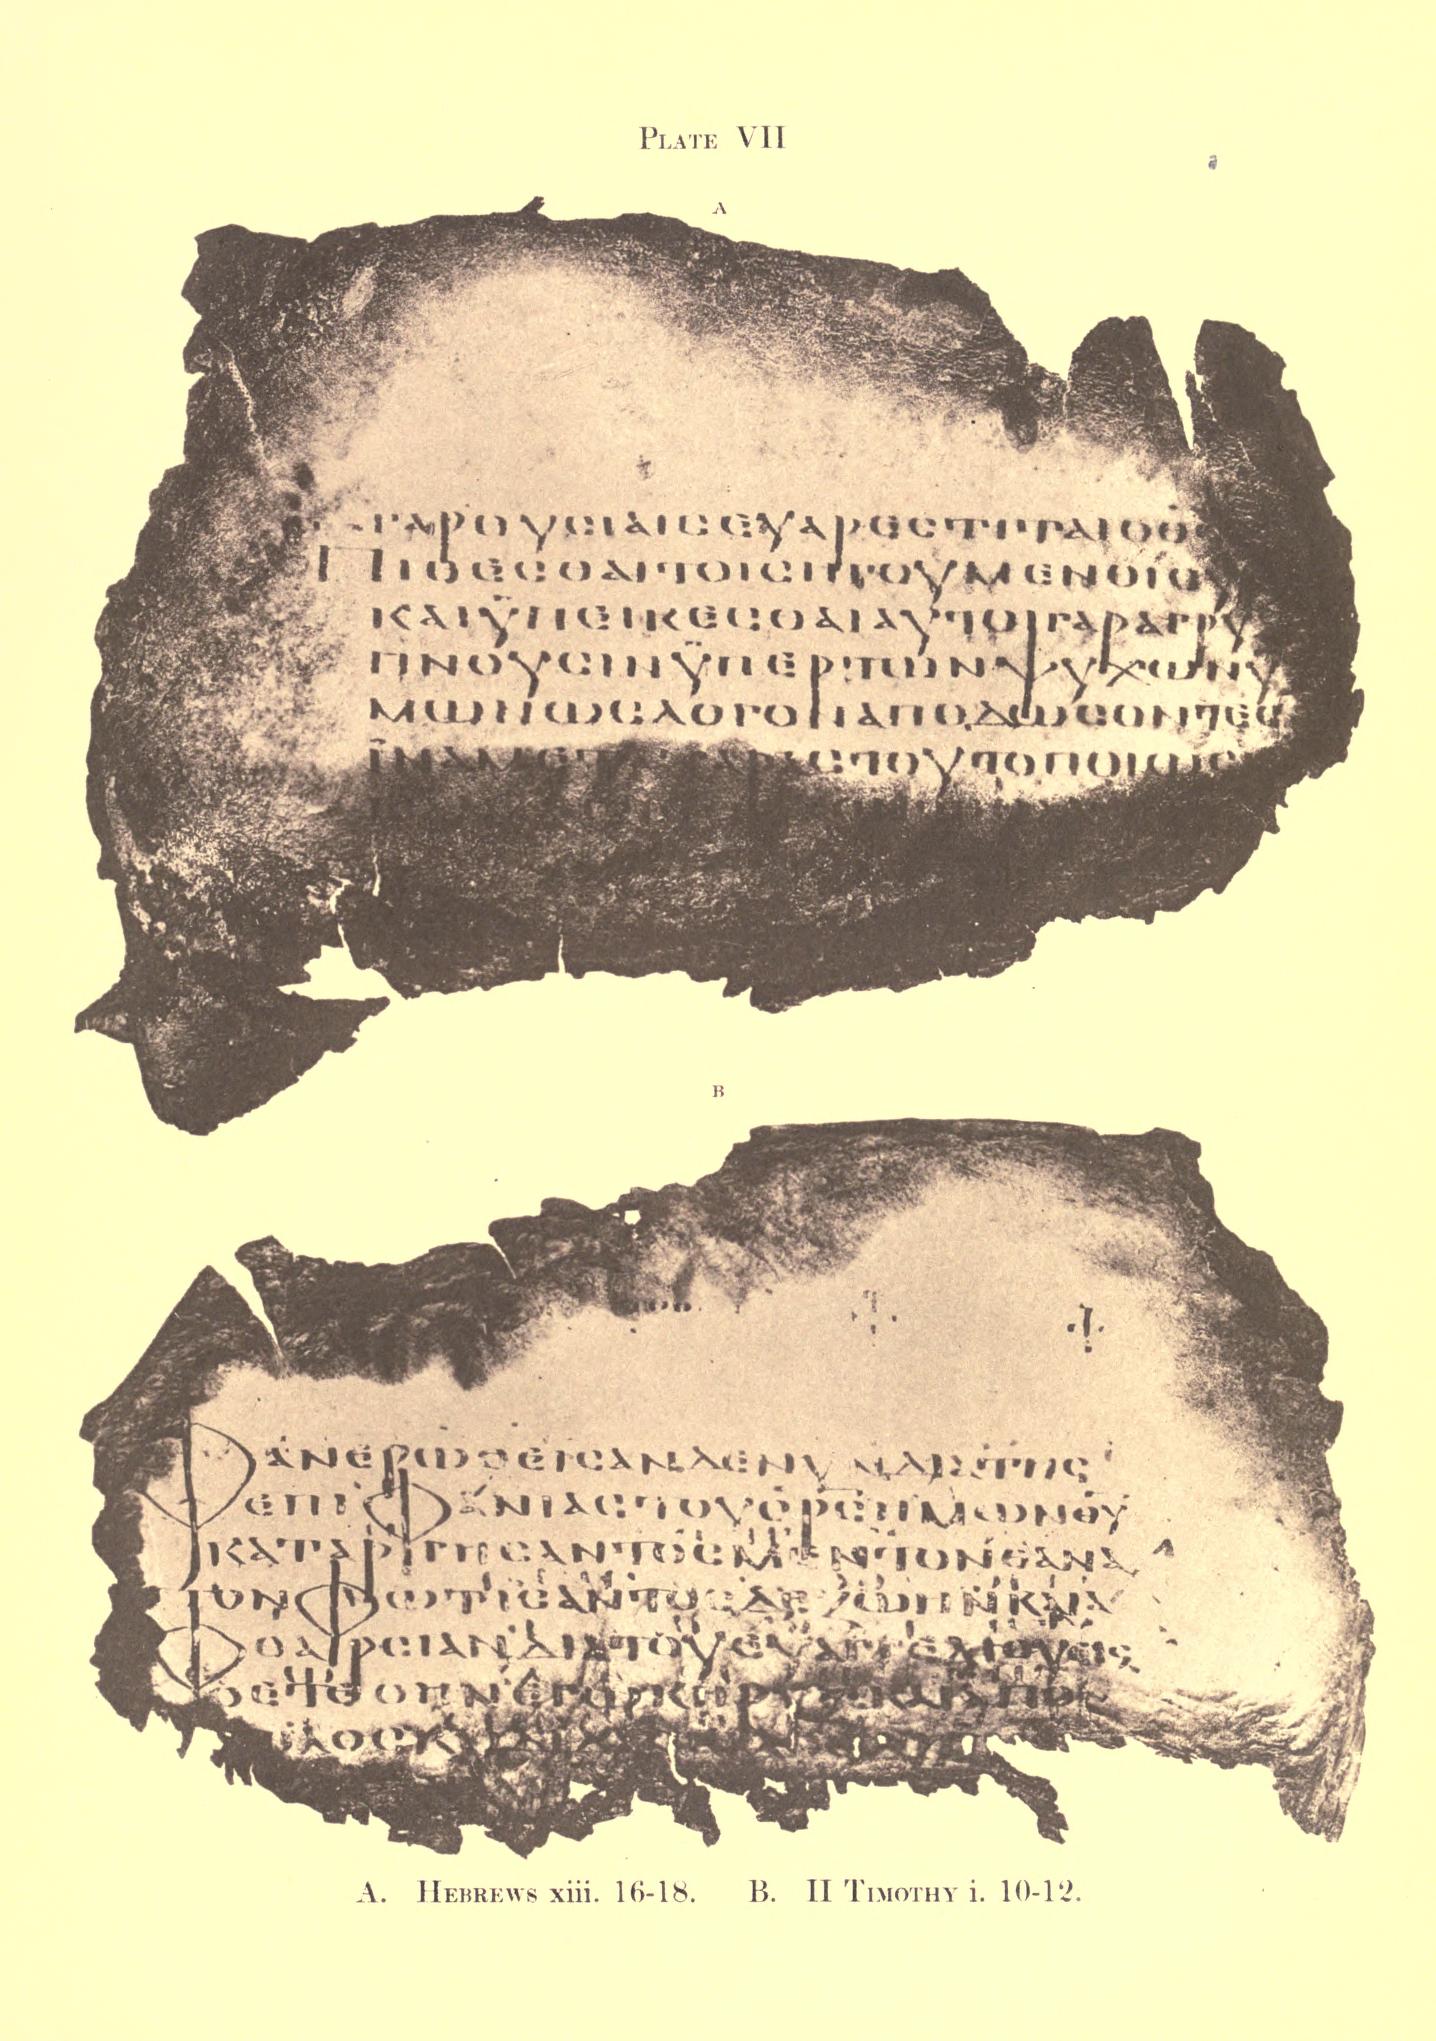 Plate VII
A
ΓΑΡΟΥΣΙΑΙΣ ΕΥΑΡΕΣΤΙΤΑΙ Ο ΘΣ
ΠΙΘΕΣΘΑΙ ΤΟΙΣ ΗΓΟΥΜΕΝΟΙΣ
ΚΑΙ ΫΠΕΙΚΕΣΘΑΙ ΑΥΤΟΙ ΓΑΡ ΑΓΡΥ
ΠΝΟΥΣΙΝ ΫΠΕΡ ΤΩΝ ΨΥΧΩΝ Υ
ΜΩΝ ΩΣ ΛΟΓΟΝ ΑΠΟΔΩΣΟΝΤΕΣ
ΪΝΑ ΜΕΤΑ ΧΑΡΑΣ ΤΟΥΤΟ ΠΟΙΩΣ
B
ΦΑΝΕΡΩΘΕΙΣΑΝ ΔΕ ΝΥΝ ΔΙΑ ΤΗΣ
ΕΠΙΦΑΝΙΑΣ ΤΟΥ ΣΡΣ ΗΜΩΝ ΘΥ
ΚΑΤΑΡΓΗΣΑΝΤΟΣ ΜΕΝ ΤΟΝ ΘΑΝΑ
ΤΟΝ ΦΩΤΙΣΑΝΤΟΣ ΔΕ ΖΩΗΝ ΚΑΙ Α
ΦΘΑΡΣΙΑΝ ΔΙΑ ΤΟΥ ΕΥΑΓΓΕΛΙΟΥ ΕΙΣ
Ο ΕΤΕΘΗΝ ΕΓΩ ΚΗΡΥΞ ΚΑΙ ΑΠΟ
ΛΟΣ Κ
A. Hebrews xiii. 16-18. B. II Timothy i. 10-12.